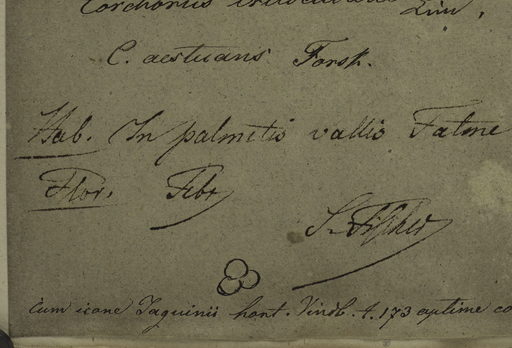 Corchorus trilocularis Lin.
C. aestuans Forsk.
Hab. In palmetis vallis Fatme
Flor. Febr
S. Fischer
Cum icone Jaquinii hort. Vindb. t. 173 optime co